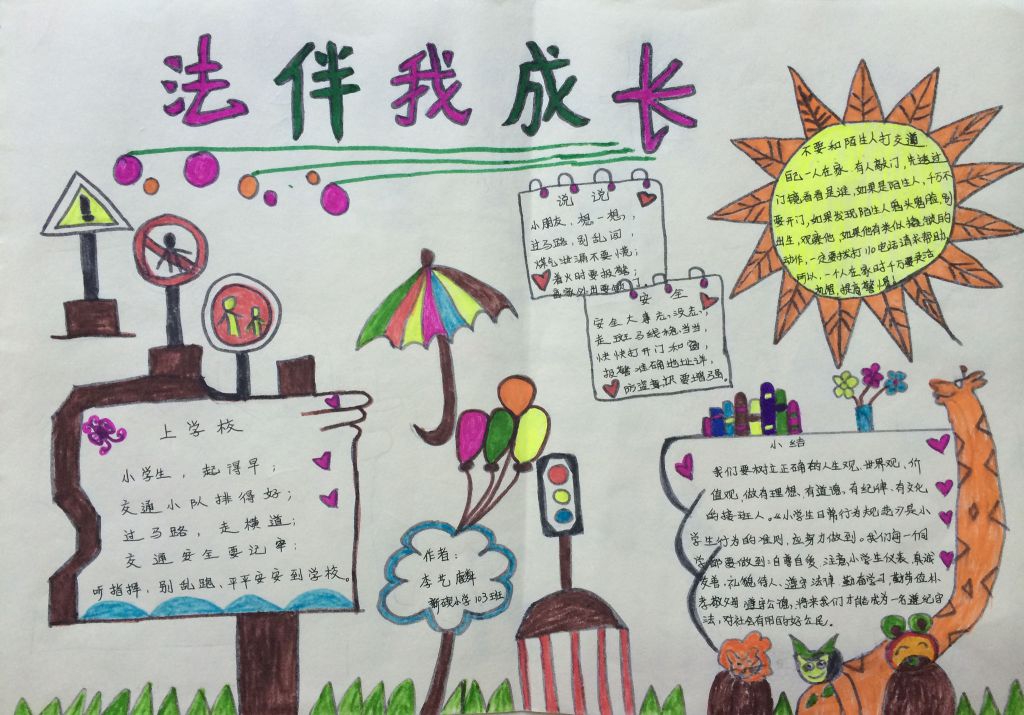 法伴我成长
说 说
小朋友，想一想，
过马路，别乱闯，
煤气泄漏不要慌；
着火时要报警；
安 全
安全大事无小没志，
走斑马线稳当当，
快快打开门和窗，
报警准确地址详，
防盗意识要增强。
不要和陌生人打交道
自己一人在家，有人敲门，先透过
门镜看看是谁，如果是陌生人，千万不
要开门，如果发现陌生人鬼头鬼脑，别
出生，观察他，如果他有类似撬锁的
动作，一定要拨打110电话请求帮助
所以，一个人在家时千万要灵活
机智，提高警惕！
上学校
小学生，起得早；
交通小队排得好；
过马路，走横道；
交通安全要记牢；
听指挥，别乱跑，平平安安到学校。
作者：
李 麟
小学103班
小结
我们要树立正确的人生观、世界观、价
值观，做有理想、有道德、有纪律、有文化
的接班人。《小学生日常行为规范》是小
学生行为的准则，应努力做到。我们每一个同
学都要做到：自尊自爱 注意小学生仪表，真诚
友善，礼貌待人，遵守法律 勤奋学习 勤劳俭朴
孝敬父母 遵守公德，将来我们才能成为一名遵纪守
法，对社会有用的好公民。